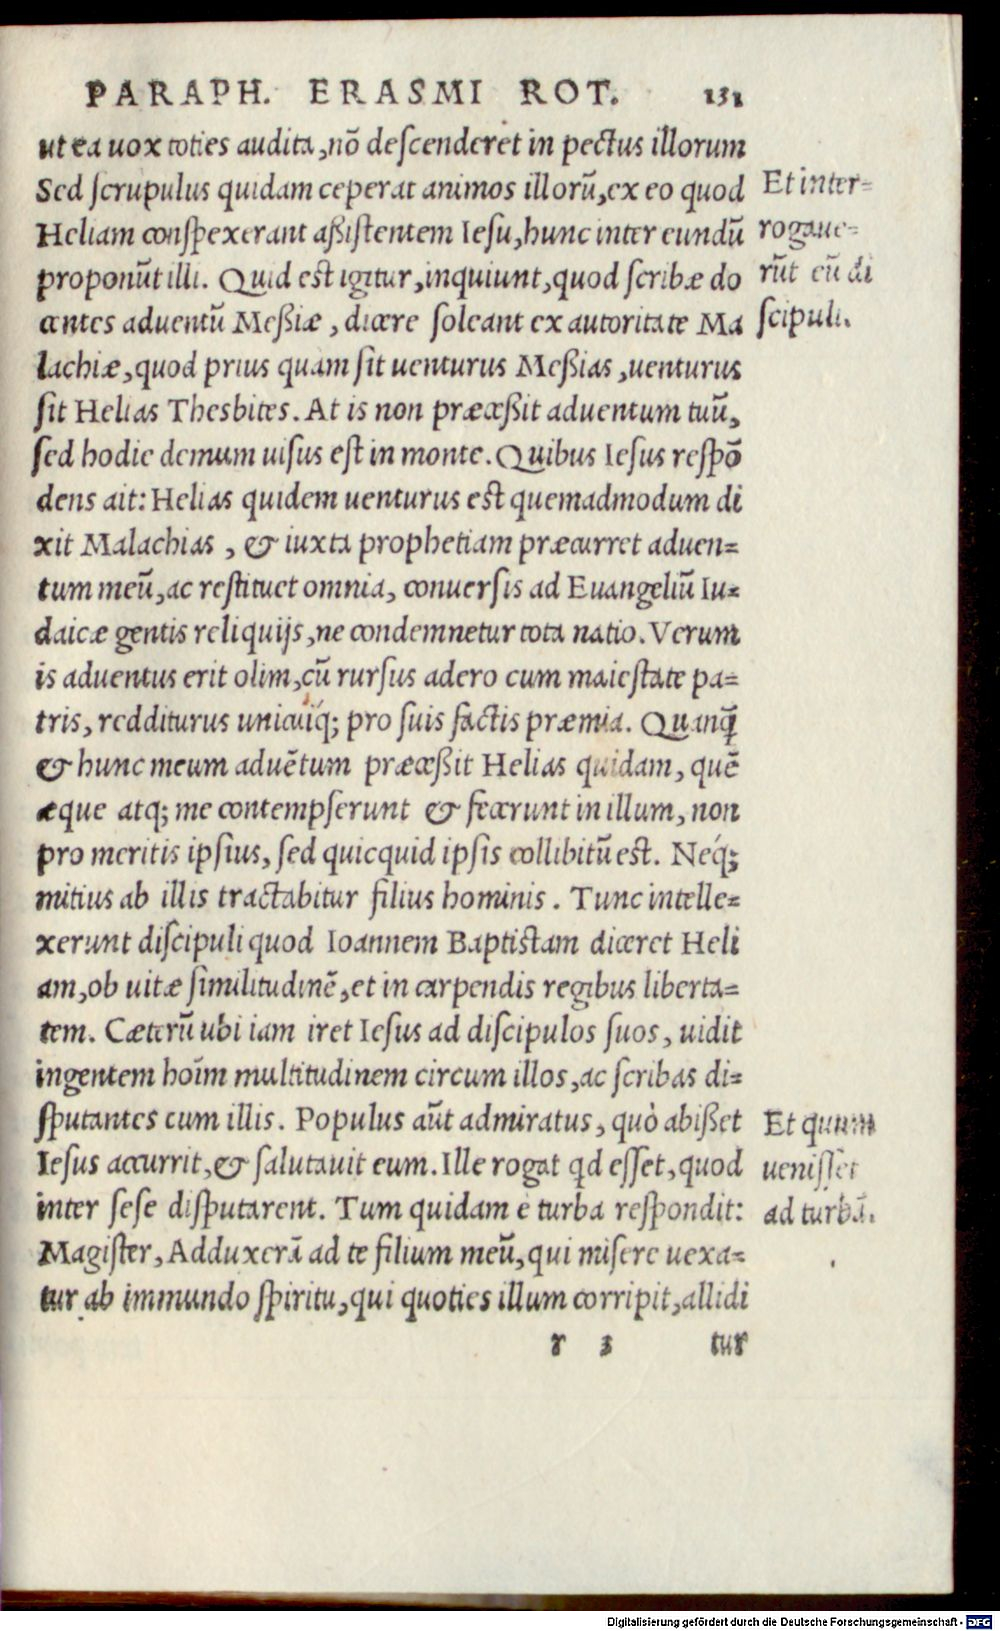 PARAPH. ERASMI ROT. 131
ut ea uox toties audita, nō descenderet in pectus illorum
Sed scrupulus quidam ceperat animos illorū, ex eo quod
Heliam conspexerant aßistentem Iesu, hunc inter eundū
proponūt illi. Quid est igitur, inquiunt, quod scribæ do
centes aduentū Meßiæ, dicere soleant ex autoritate Ma
lachiæ, quod prius quam sit uenturus Meßias, uenturus
sit Helias Thesbites. At is non præceßit aduentum tuū,
sed hodie demum uisus est in monte. Quibus Iesus respō
dens ait: Helias quidem uenturus est quemadmodum di
xit Malachias, & iuxta prophetiam præcurret aduen=
tum meū, ac restituet omnia, conuersis ad Euangeliū Iu=
daicæ gentis reliquijs, ne condemnetur tota natio. Verum
is aduentus erit olim, cū rursus adero cum maiestate pa=
tris, redditurus unicuiq́; pro suis factis præmia. Quanq̄
& hunc meum aduētum præceßit Helias quidam, quē
æque atq; me contempserunt & fecerunt in illum, non
pro meritis ipsius, sed quicquid ipsis collibitū est. Neq́;
mitius ab illis tractabitur filius hominis. Tunc intelle=
xerunt discipuli quod Ioannem Baptistam diceret Heli
am, ob uitæ similitudinē, et in carpendis regibus liberta=
tem. Cæterū ubi iam iret Iesus ad discipulos suos, uidit
ingentem hoīm multitudinem circum illos, ac scribas di=
sputantes cum illis. Populus aūt admiratus, quò abißet
Iesus accurrit, & salutauit eum. Ille rogat qd esset, quod
inter sese disputarent. Tum quidam e turba respondit:
Magister, Adduxerā ad te filium meū, qui misere uexa=
tur ab immundo spiritu, qui quoties illum corripit, allidi
r 3 tur
Et inter=
rogaue=
rūt eū di
scipuli.
Et quum
uenisset
ad turbā.
Digitalisierung gefördert durch die Deutsche Forschungsgemeinschaft - DFG